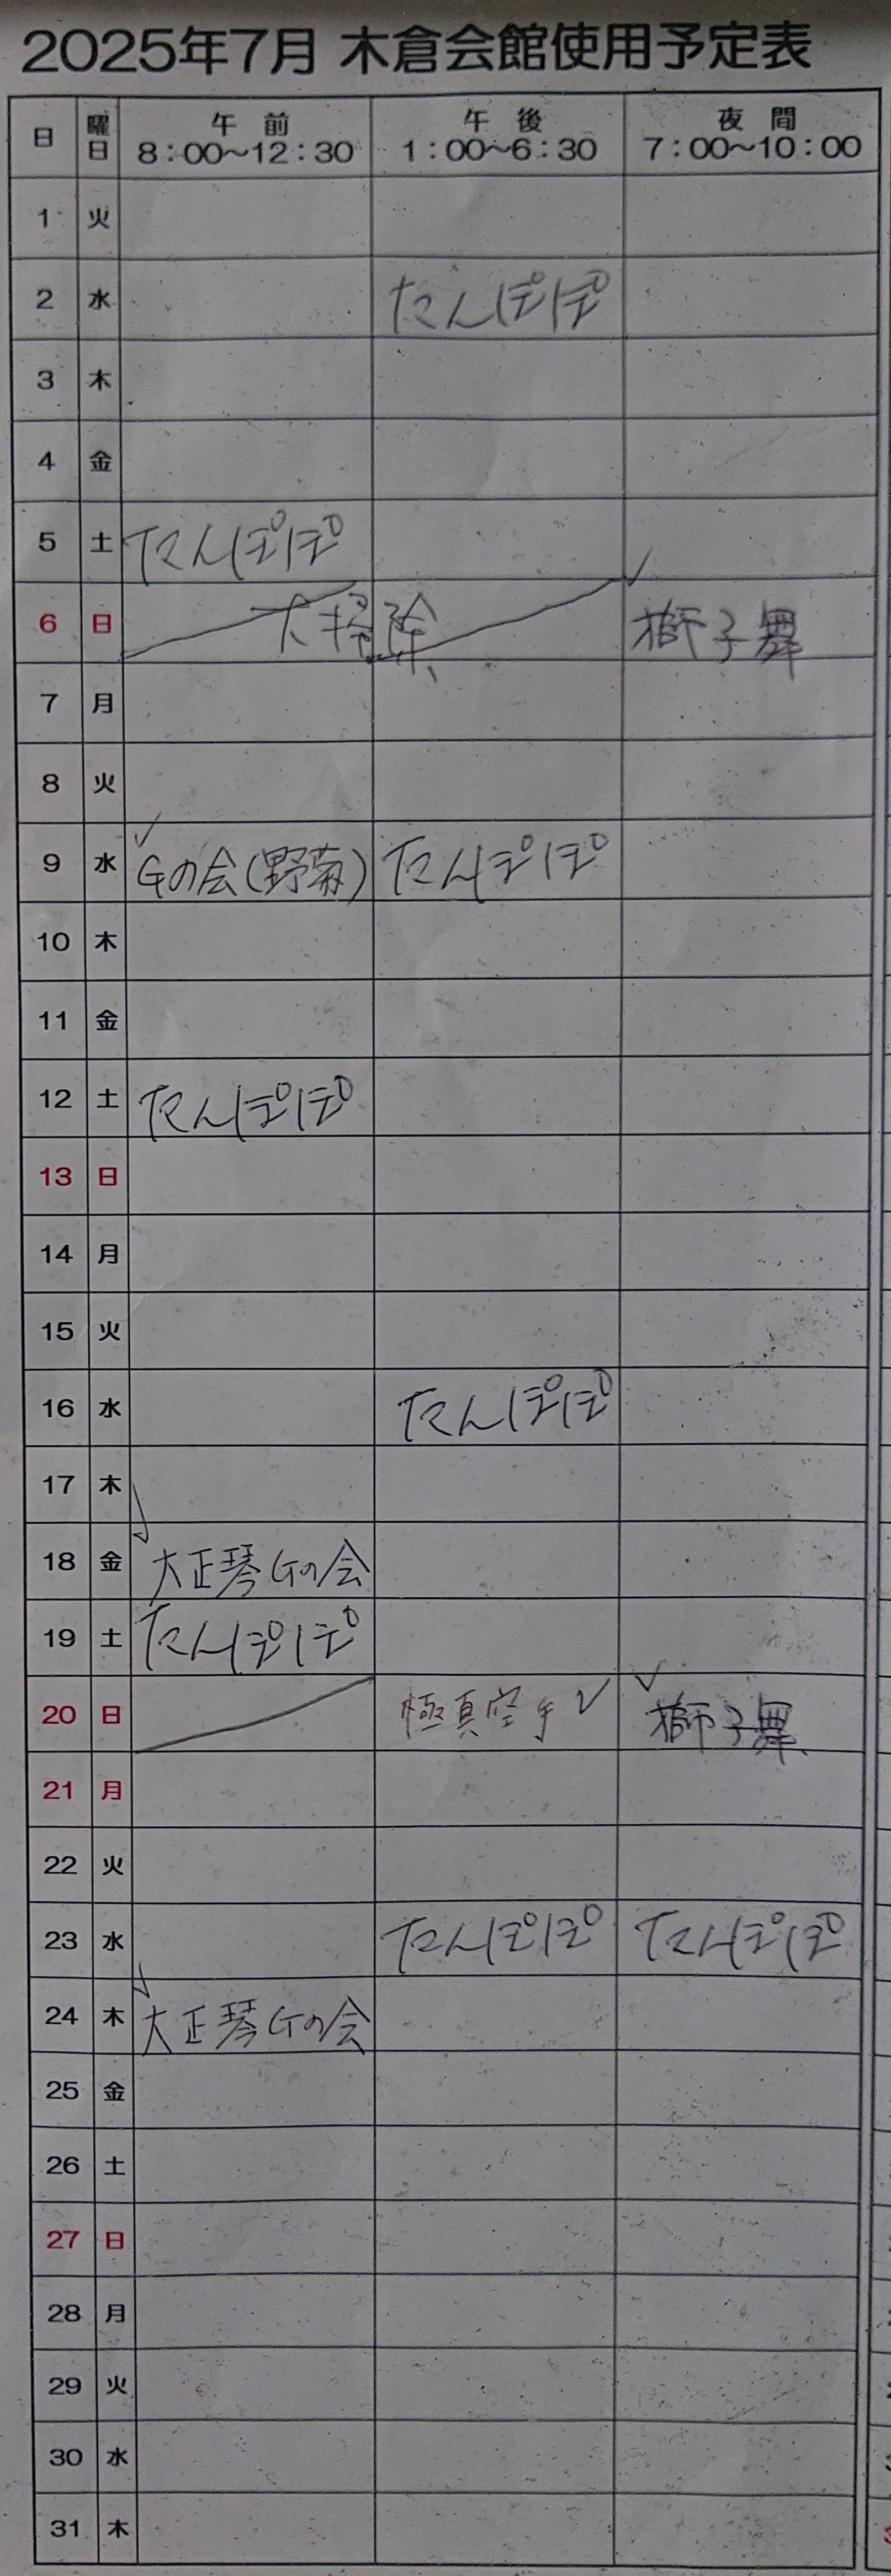 2025年7月 木倉会館使用予定表
日 曜日 午前 8:00～12:30 午後 1:00～6:30 夜間 7:00～10:00
1 火
2 水 たんぽぽ
3 木
4 金
5 土 たんぽぽ
6 日 大掃除 獅子舞
7 月
8 火
9 水 Gの会(野菊) たんぽぽ
10 木
11 金
12 土 たんぽぽ
13 日
14 月
15 火
16 水 たんぽぽ
17 木
18 金 大正琴Gの会
19 土 たんぽぽ
20 日 極真空手 獅子舞
21 月
22 火
23 水 たんぽぽ たんぽぽ
24 木 大正琴Gの会
25 金
26 土
27 日
28 月
29 火
30 水
31 木